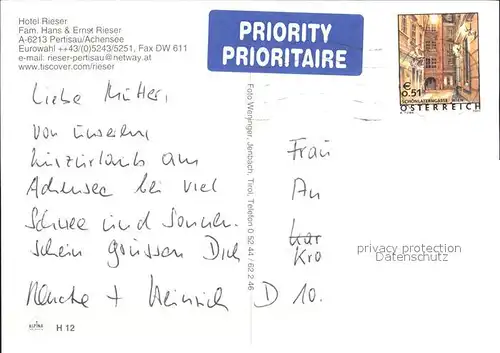 Hotel Rieser
Fam. Hans & Ernst Rieser
A-6213 Pertisau/Achensee
Eurowahl ++43/(0)5243/5251, Fax DW 611
e-mail: rieser-pertisau@netway.at
www.tiscover.com/rieser
PRIORITY
PRIORITAIRE
€ 0,51
SCHÖNLATERNGASSE, WIEN
ÖSTERREICH
Liebe Mutter,
von unserem
Kurzurlaub am
Achensee bei viel
Schnee und Sonnen-
schein grüssen Dich
+ Heinrich
Foto Weninger, Jenbach, Tirol, Telefon 0 52 44 / 62 2 46
Frau
An
Kar
Kro
D 10.
privacy protection
Datenschutz
ALPINA
H 12